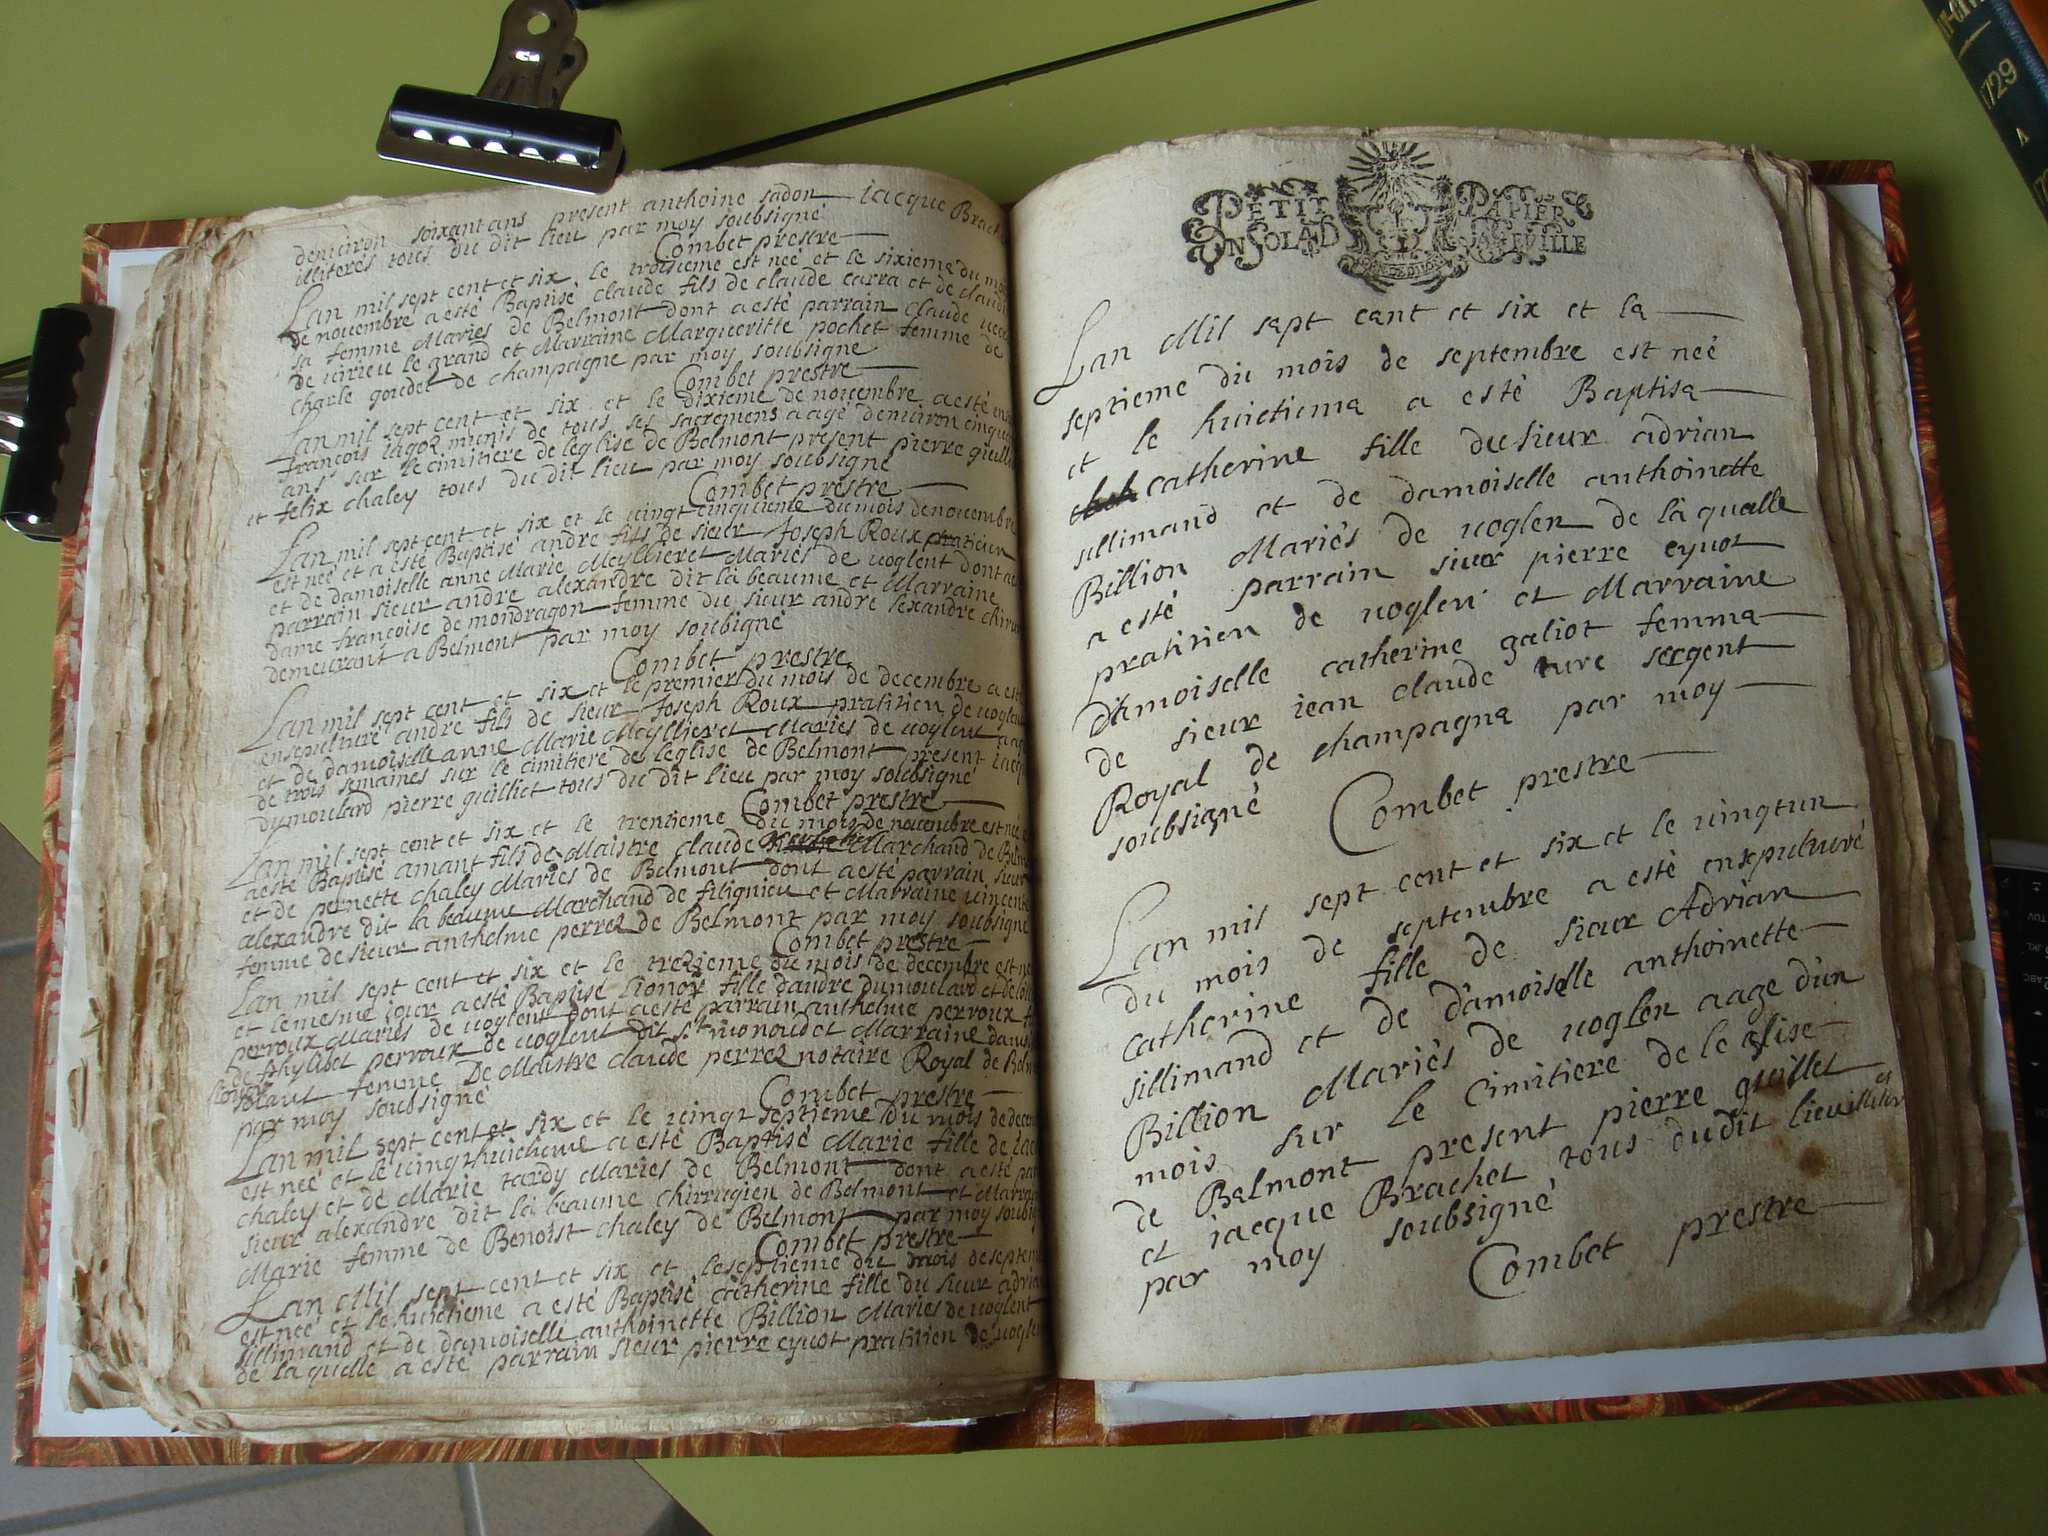 denviron soixant ans present anthoine sadon iacque Brach
illiterés tous du dit lieu par moy soubsigné
Combet prestre
Lan mil sept cent et six le troisieme est neé et le sixieme du mois
de novembre a esté Baptisé claude fils de claude carra et de claud
sa femme Mariés de Belmont dont a esté parrain claude
de virieu le grand et Marraine Margueritte pochet femme de
charle goudet de champagne par moy soubsigne
Combet prestre
Lan mil sept cent et six et le dixieme de novembre a esté
françois iagoz munis de tous ses sacremens aagé denviron cinqua
ans sur le cimitiere de leglise de Belmont present pierre guille
et felix chaley tous du dit lieu par moy soubsigné
Combet prestre
Lan mil sept cent et six et le vingt cinquieme du mois de novembre
est neé et a esté Baptisé andre fils de sieur Joseph Roux praticien
et de damoiselle anne Marie Meyllieret Mariés de voglent dont a
parrain sieur andre alexandre dit la beaume et Marraine
dame françoise de mondragon femme du sieur andre lexandre chirur
demeurant a Belmont par moy soubigné
Combet prestre
Lan mil sept cent et six et le premier du mois de decembre a esté
ensepulturé andre fils de sieur Joseph Roux pratitien de voglen
et de damoiselle anne Marie Meyllieret Mariés de voglent aagé
de trois semaines sur le cimitiere de leglise de Belmont present iacq
dumoulard pierre guilliet tous du dit lieu par moy soubsigné
Combet prestre
Lan mil sept cent et six et le trentieme du mois de novembre est neé et
a esté Baptisé amant fils de Maistre claude Marchand de Belm
et de pernette chaley Mariés de Belmont dont a esté parrain sieur
alexandre dit la beaume Marchand de filignieu et Marraine vincente
femme de sieur anthelme perrez de Belmont par moy soubsigné
Combet prestre
Lan mil sept cent et six et le trezieme du mois de decembre est neé
et le mesme iour a esté Baptisé Lionor fille dandre dumoulard et de
perroux Mariés de voglent dont a esté parrain anthelme perroux
de phylibet perroux de voglent dit st et Marraine damois
femme De Maistre claude perrez notaire Royal de Belm
par moy soubsigné
Combet prestre
Lan mil sept cent et six et le vingt septieme du mois de decem
est neé et le vingt huictieme a esté Baptisé Marie fille de iac
chaley et de Marie tardy Mariés de Belmont dont a esté par
sieur alexandre dit la beaume chirrugien de Belmont et Marrai
Marie femme de Benoist chaley de Belmont par moy soubsig
Combet prestre
Lan Mil sept cent et six et le septieme du mois de septem
est neé et le huictieme a esté Baptisé catherine fille du sieur adrian
sillimand et de damoiselle anthoinette Billion Mariés de voglent
de laquelle a esté parrain sieur pierre eyvot pratitien de voglen
PETIT PAPIER
UN SOL A D LA FEUILLE
Lan Mil sept cent et six et la
septieme du mois de septembre est neé
et le huictieme a esté Baptisa
catherine fille du sieur adrian
sillimand et de damoiselle anthoinette
Billion Mariés de voglen de la qualle
a esté parrain sieur pierre eyvot
pratitien de voglen et Marraine
damoiselle catherine galiot femma
de sieur iean claude ture sergent
Royal de champagna par moy
soubsigné Combet prestre
Lan mil sept cent et six et le vingtun
du mois de septembre a esté ensepulturé
catherine fille de sieur Adrian
sillimand et de d'amoiselle anthoinette
Billion Mariés de voglen aaze d'un
mois sur le Cimitiere de le glise
de Belmont present pierre guillet
et iacque Brachet tous dudit lieu illiterés
par moy soubsigné
Combet prestre
1729
A